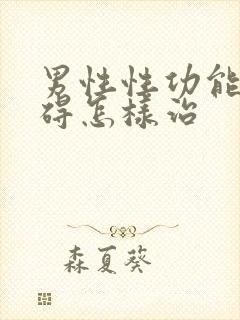 男性性功能
碍怎样治
森夏葵